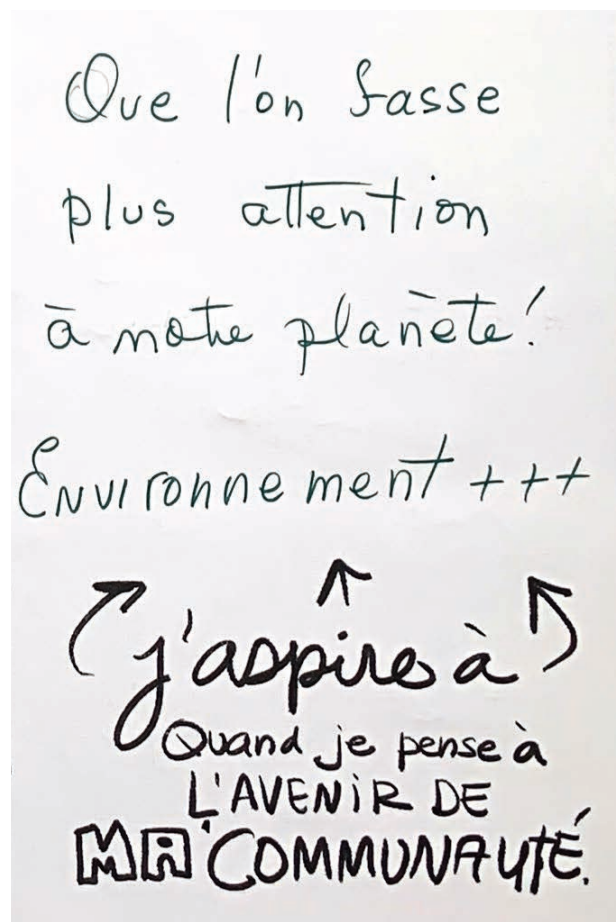 Que l'on fasse
plus attention
à notre planète!
Environnement +++
j'aspire à
Quand je pense à
L'AVENIR DE
MA COMMUNAUTÉ.